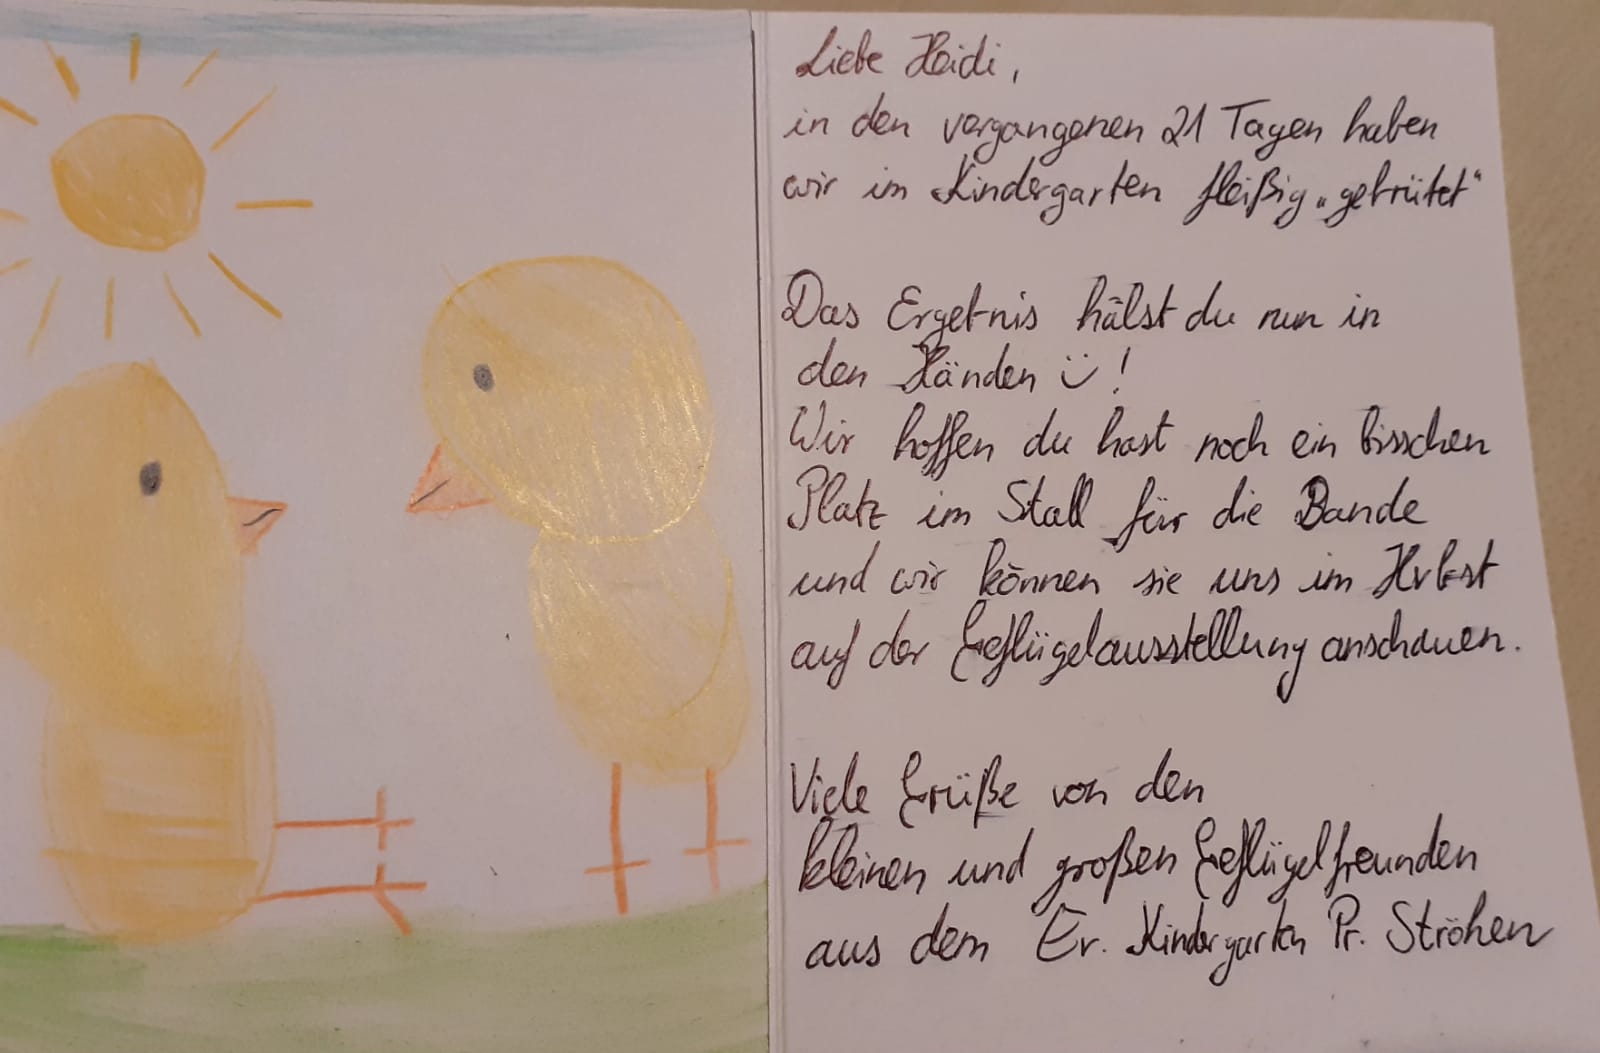 Liebe Heidi,
in den vergangenen 21 Tagen haben
wir im Kindergarten fleißig „gebrütet“
Das Ergebnis hälst du nun in
den Händen ü !
Wir hoffen du hast noch ein bisschen
Platz im Stall für die Bande
und wir können sie uns im Herbst
auf der Geflügelausstellung anschauen.
Viele Grüße von den
kleinen und großen Geflügelfreunden
aus dem Ev. Kindergarten Pr. Ströhen